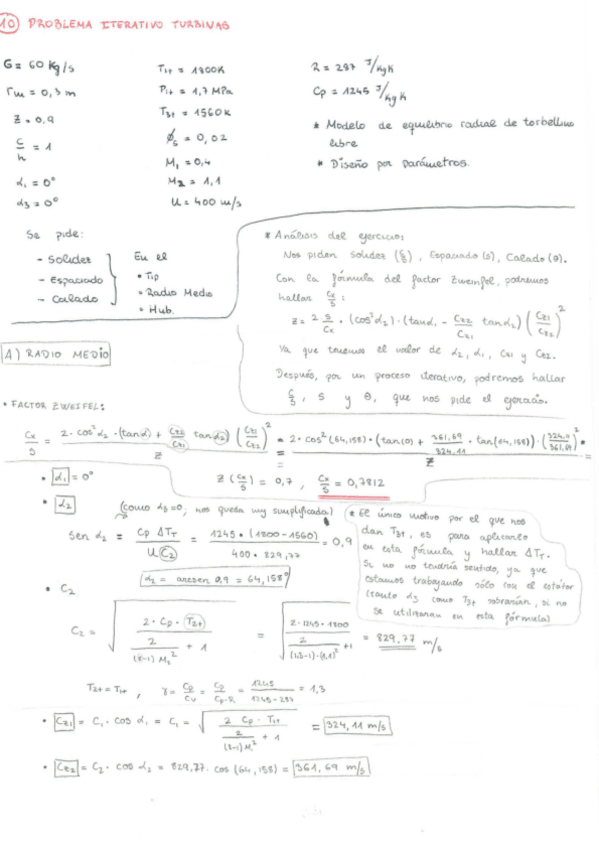 10 PROBLEMA ITERATIVO TURBINAS
G = 60 Kg/s
rm = 0,3 m
Z = 0,9
c/h = 1
α1 = 0°
α3 = 0°
T1t = 1800K
P1t = 1,7 MPa
T3t = 1560K
ϕs = 0,02
M1 = 0,4
M2 = 1,1
U = 400 m/s
R = 287 J/KgK
Cp = 1245 J/KgK
* Modelo de equilibrio radial de torbellino
libre
* Diseño por parámetros.
Se pide:
- Solidez
- Espaciado
- Calado
En el
• Tip
• Radio Medio
• Hub.
* Análisis del ejercicio:
Nos piden Solidez (c/s), Espaciado (s), Calado (θ).
Con la fórmula del factor Zweifel, podremos
hallar cx/s:
Z = 2 s/cx · (cos² α2) · (tan α1 - Cz2/Cz1 tan α2) (Cz1/Cz2)²
Ya que tenemos el valor de α2, α1, Cz1 y Cz2.
Después, por un proceso iterativo, podremos hallar
c/s, s y θ, que nos pide el ejercicio.
A) RADIO MEDIO
• FACTOR ZWEIFEL:
Cx/s = 2 · cos² α2 · (tan α1 + Cz2/Cz1 tan α2) (Cz1/Cz2)² / Z = 2 · cos² (64,158) · (tan(0) + 361,69/324,11 · tan(64,158)) · (324,11/361,69)² / Z =
• α1 = 0°
Z (Cx/s) = 0,7 , Cx/s = 0,7812
• α2
(como α3=0°, nos queda muy simplificada)
Sen α2 = Cp ΔTT / U C2 = 1245 · (1800 - 1560) / 400 · 829,77 = 0,9
α2 = arcsen 0,9 = 64,158°
* El único motivo por el que nos
dan T3t, es para aplicarlo
en esta fórmula y hallar ΔTT.
Si no no tendría sentido, ya que
estamos trabajando sólo con el estátor
(tanto α3 como T3t sobrarían, si no
se utilizaran en esta fórmula)
• C2
C2 = √(2 · Cp · T2t / (2/((γ-1) M2²) + 1)) = √(2 · 1245 · 1800 / (2/((1,3-1)·(1,1)²) + 1)) = 829,77 m/s
T2t = T1t , γ = Cp/Cv = Cp/(Cp-R) = 1245/(1245-287) = 1,3
• Cz1 = C1 · cos α1 = C1 = √(2 Cp · T1t / (2/((γ-1) M1²) + 1)) = 324,11 m/s
• Cz2 = C2 · cos α2 = 829,77 · cos (64,158) = 361,69 m/s